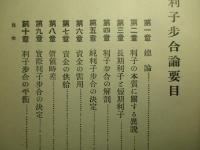 利子步合論要目
第一章 總論
第二章 利子の本質に關する異說
第三章 長期利子と短期利子
第四章 利子步合の解剖
第五章 純利子步合の決定
第六章 資金の需用
第七章 資金の供給
第八章 價値時差
第九章 實際利子步合の決定
第十章 利子步合の平衡